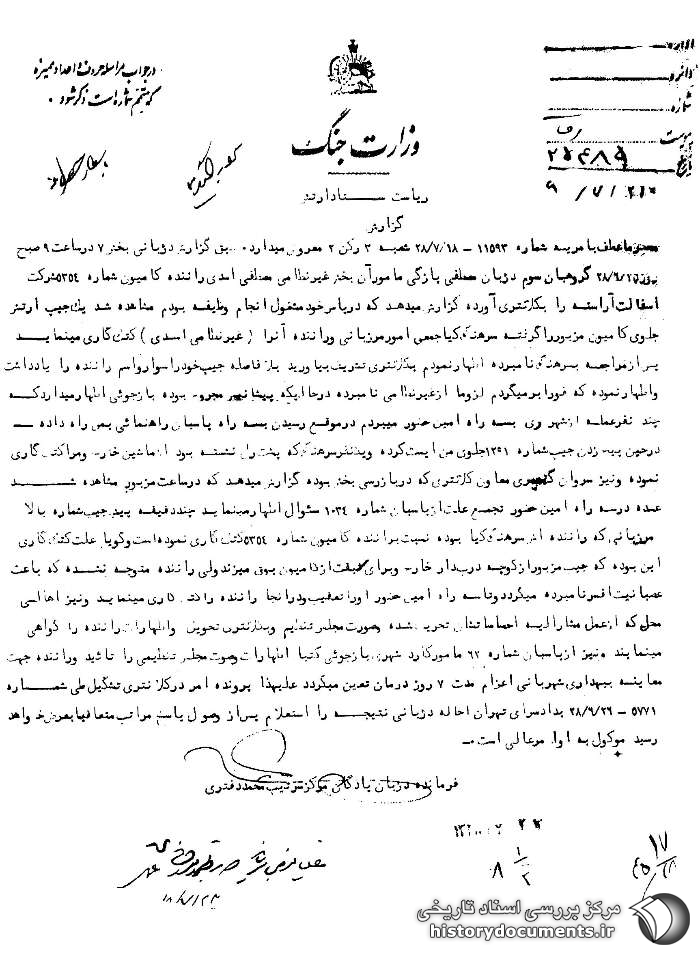 در جواب مراسله حروف و اعداد ممیزه
که متمم نمره است ذکر شود
اداره
دائره
شماره
پیوست
تاریخ
۲۵۴۸۹
وزارت جنگ
ریاست ستاد ارتش
گزارش
محترماً عطف بامریه شماره ۱۱۵۹۳ – ۲۸/۷/۱۸ شعبه ۳ رکن ۲ معروض میدارد طبق گزارش دژبانی بخش ۷ در ساعت ۹ صبح
گروهبان سوم دژبان مصطفی بازگی مامور آن بخش غیرنظامی مصطفی اسدی راننده کامیون شماره ۵۳۵۴ شرکت
اسفالت آراسته را بکلانتری آورده گزارش میدهد که در سر خود مشغول انجام وظیفه بودم مشاهده شد یک جیپ ارتش
جلوی کامیون مزبور را گرفته سرهنگ کیا جمعی امور مرزبانی و راننده آنرا (غیرنظامی اسدی) کتک کاری مینماید
پس از مراجعه بسرهنگ نامبرده اظهار نمودم بکلانتری تشریف بیاورید بلافاصله جیپ خود را سوار و اسم راننده را یادداشت
و اظهار نمود که فوراً بر میگردم لزوماً از غیرنظامی نامبرده در حالیکه پیشانیش مجروح بوده بازجوئی اظهار میدارد که
چند نفر عمله از شهر ری بسه راه امین حضور میبردم در موقع رسیدن بسه راه پاسبان راهنمائی بمن راه داده –
در حین پیچ زدن جیپ شماره ۱۲۵۱ جلوی من ایست کرده و یکنفر سرهنگ که پشت رل نشسته بود از ماشین خارج و مرا کتک کاری
نموده و نیز سروان معاون کلانتری که در بازرسی بخش بوده گزارش میدهد که در ساعت مزبور مشاهده شد
عده در سه راه امین حضور تجمع علت از پاسبان شماره ۱۰۳۴ سئوال اظهار مینماید چند دقیقه پیش جیپ شماره بالا
مرزبانی که راننده اش سرهنگ کیا بوده نسبت براننده کامیون شماره ۵۳۵۴ کتک کاری نموده است و گویا علت کتک کاری
این بوده که جیپ مزبور از کوچه دربدار خارج و برای سبقت از کامیون بوق میزند ولی راننده متوجه نشده که باعث
عصبانیت افسر نامبرده میگردد و تا سه راه امین حضور او را تعقیب و در آنجا راننده را کتک کاری مینماید و نیز اهالی
محل که از عمل مشارالیه احساساتشان تحریک شده صورت مجلس تنظیم و بکلانتری تحویل و اظهارات راننده را گواهی
مینمایند و نیز از پاسبان شماره ۶۲ مامور کارد شهری بازجوئی کتباً اظهارات و صورت مجلس تنظیمی را تائید و راننده جهت
معاینه ببهداری شهربانی اعزام مدت ۷ روز درمان تعیین میگردد علیهذا پرونده امر در کلانتری تشکیل طی شماره
۵۷۷۱ – ۲۸/۶/۲۶ بدادسرای تهران احاله دژبانی نتیجه را استعلام پس از وصول پاسخ مراتب متعاقباً بعرض خواهد
رسید موکول به اوامر عالی است –
فرمانده دژبان پادگان مرکز سرتیپ محمد دفتری
۱۷
مرکز بررسی اسناد تاریخی
historydocuments.ir